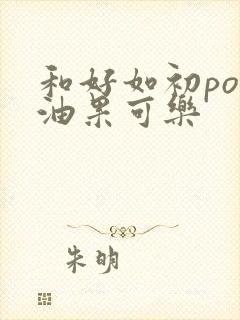 和好如初po
油果可樂
朱明